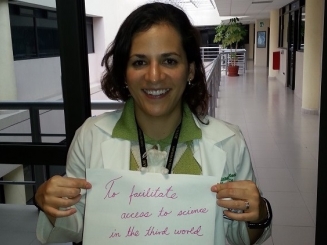 To facilitate
access to science
in the third world